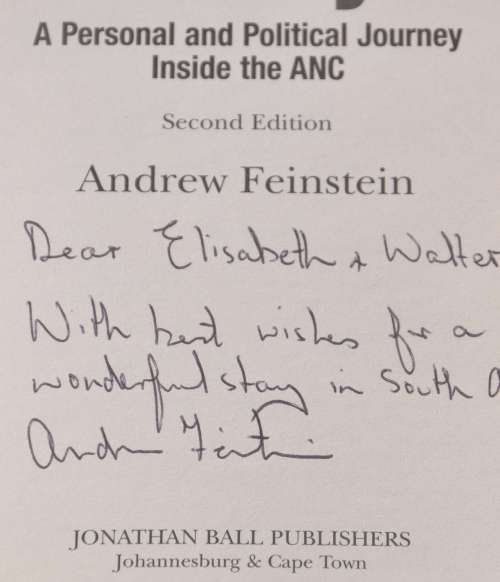 A Personal and Political Journey
Inside the ANC
Second Edition
Andrew Feinstein
Dear Elisabeth & Walter
With best wishes for a
wonderful stay in South
JONATHAN BALL PUBLISHERS
Johannesburg & Cape Town